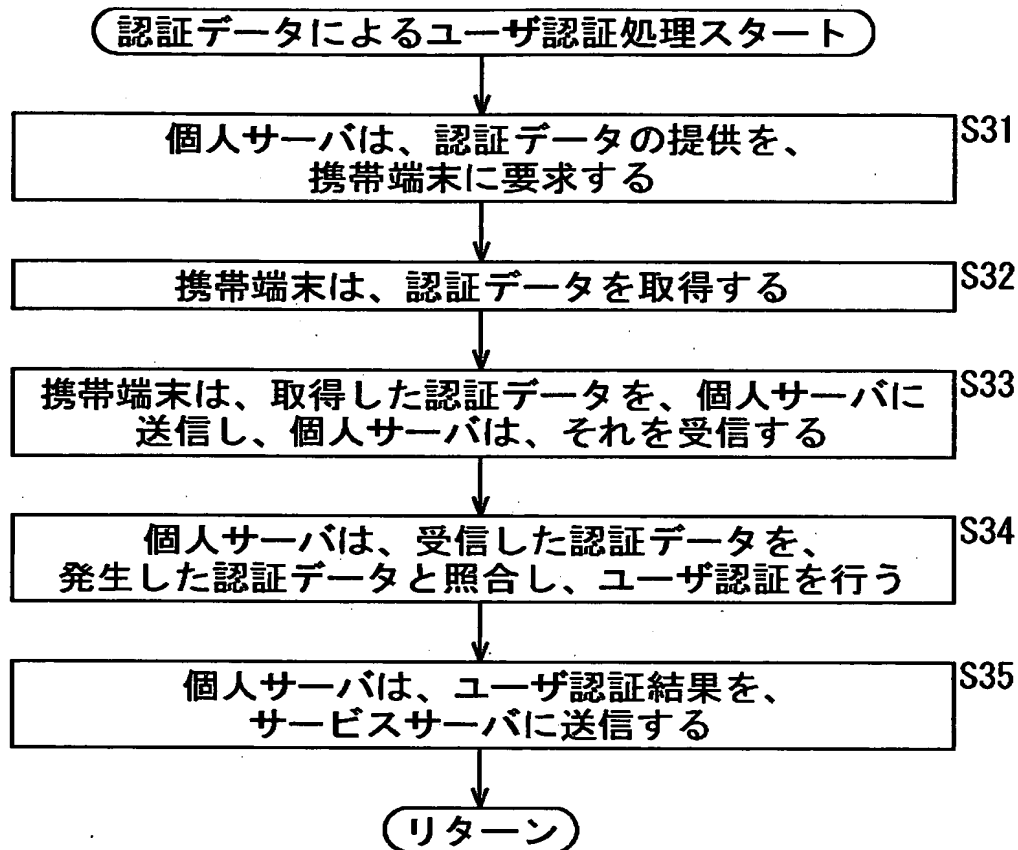 認証データによるユーザ認証処理スタート
個人サーバは、認証データの提供を、
携帯端末に要求する
S31
携帯端末は、認証データを取得する
S32
携帯端末は、取得した認証データを、個人サーバに
送信し、個人サーバは、それを受信する
S33
個人サーバは、受信した認証データを、
発生した認証データと照合し、ユーザ認証を行う
S34
個人サーバは、ユーザ認証結果を、
サービスサーバに送信する
S35
リターン